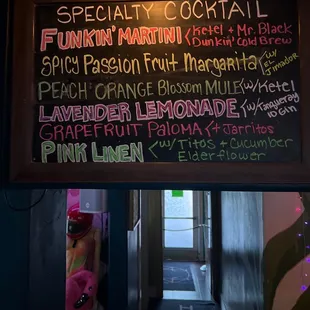 SPECIALTY COCKTAIL
FUNKIN' MARTINI Ketel + Mr. Black
Dunkin' Cold Brew
SPICY Passion Fruit Margarita w/
EL
JIMADOR
PEACH ORANGE Blossom MULE w/Ketel
LAVENDER LEMONADE w/Tanqueray
10 Gin
GRAPEFRUIT PALOMA + Jarritos
PINK LINEN w/ Titos + Cucumber
Elderflower